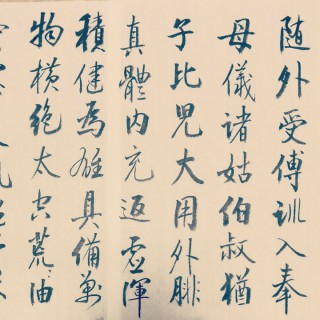 随外受傅訓入奉
母儀諸姑伯叔猶
子比兒大用外腓
真體内充返虛渾
積健為雄具備萬
物橫絕太空荒〻油